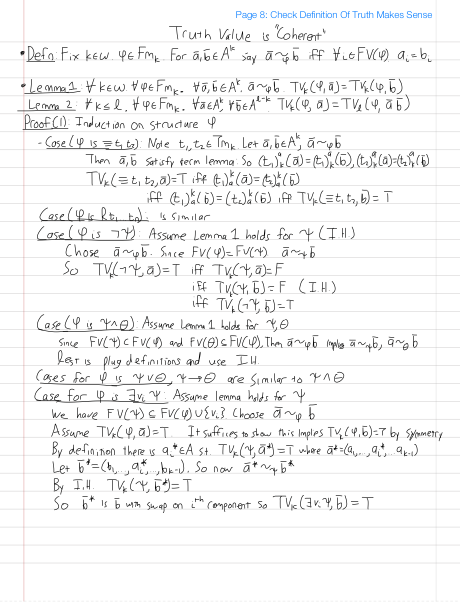 Page 8: Check Definition Of Truth Makes Sense
Truth Value is "Coherent"
• Defn: Fix k∈ω, φ∈Fmₖ. For ā,b̄∈Aᵏ say ā ~φ b̄ iff ∀i∈FV(φ) aᵢ = bᵢ
• Lemma 1: ∀k∈ω ∀φ∈Fmₖ. ∀ā,b̄∈Aᵏ. ā ~φ b̄. TVₖ(φ,ā) = TVₖ(φ,b̄)
Lemma 2: ∀k≤l, ∀φ∈Fmₖ. ∀ā∈Aᵏ, ∀b̄∈Aˡ⁻ᵏ TVₖ(φ,ā) = TVₗ(φ,āb̄)
Proof(1): Induction on structure φ
- Case(φ is ≡t₁t₂): Note t₁,t₂∈Tmₖ. Let ā,b̄∈Aᵏ, ā ~φ b̄
Then ā,b̄ satisfy term lemma. So (t₁)ₐᵏ(ā) = (t₁)ₐᵏ(b̄), (t₂)ₐᵏ(ā) = (t₂)ₐᵏ(b̄)
TVₖ(≡t₁t₂,ā) = T iff (t₁)ₐᵏ(ā) = (t₂)ₐᵏ(ā)
iff (t₁)ₐᵏ(b̄) = (t₂)ₐᵏ(b̄) iff TVₖ(≡t₁t₂,b̄) = T
Case(φ is Rt₁ t₂): is similar
Case(φ is ¬ψ): Assume Lemma 1 holds for ψ (I.H.)
Chose ā ~φ b̄. Since FV(φ) = FV(ψ) ā ~ψ b̄
So TVₖ(¬ψ,ā) = T iff TVₖ(ψ,ā) = F
iff TVₖ(ψ,b̄) = F (I.H.)
iff TVₖ(¬ψ,b̄) = T
Case(φ is ψ∧θ): Assume Lemma 1 holds for ψ,θ
Since FV(ψ)⊆FV(φ) and FV(θ)⊆FV(φ), Then ā ~φ b̄ implies ā ~ψ b̄, ā ~θ b̄
Rest is plug definitions and use I.H.
Cases for φ is ψ∨θ, ψ→θ are similar to ψ∧θ
Case for φ is ∃vᵢψ: Assume lemma holds for ψ
We have FV(ψ) ⊆ FV(φ)∪{vᵢ} Choose ā ~φ b̄
Assume TVₖ(φ,ā) = T. It suffices to show this implies TVₖ(φ,b̄) = T by symmetry
By definition there is aᵢ*∈A st. TVₖ(ψ,ā*) = T where ā* = (a₀,...,aᵢ*,...aₖ₋₁)
Let b̄* = (b₀,...,aᵢ*,...,bₖ₋₁). So now ā* ~ψ b̄*
By I.H. TVₖ(ψ,b̄*) = T
So b̄* is b̄ with swap on iᵗʰ component so TVₖ(∃vᵢψ,b̄) = T